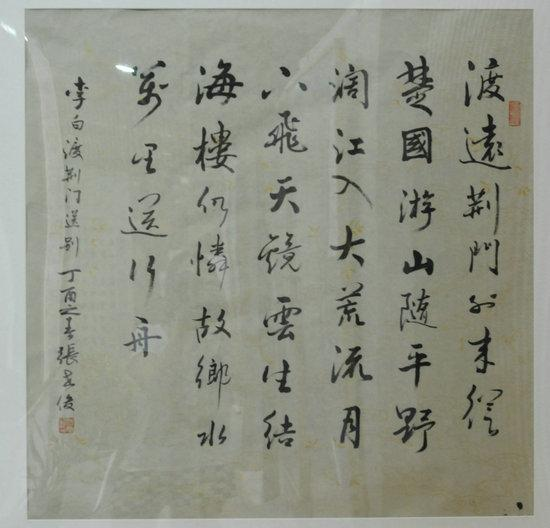 渡遠荆門外来從
楚國游山隨平野
濶江入大荒流月
下飛天鏡雲生结
海樓仍憐故鄉水
萬里送行舟
李白渡荆门送别 丁酉之春張俊